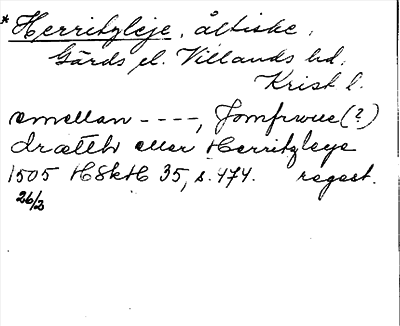 * Herritzleje, ålfiske,
Gärds el. Villands hd.
Krist l.
emellan ----, Jomfrwue(?)
drætth eller Herritzleye
1505 HSkH 35, s. 474. regest.
26/3